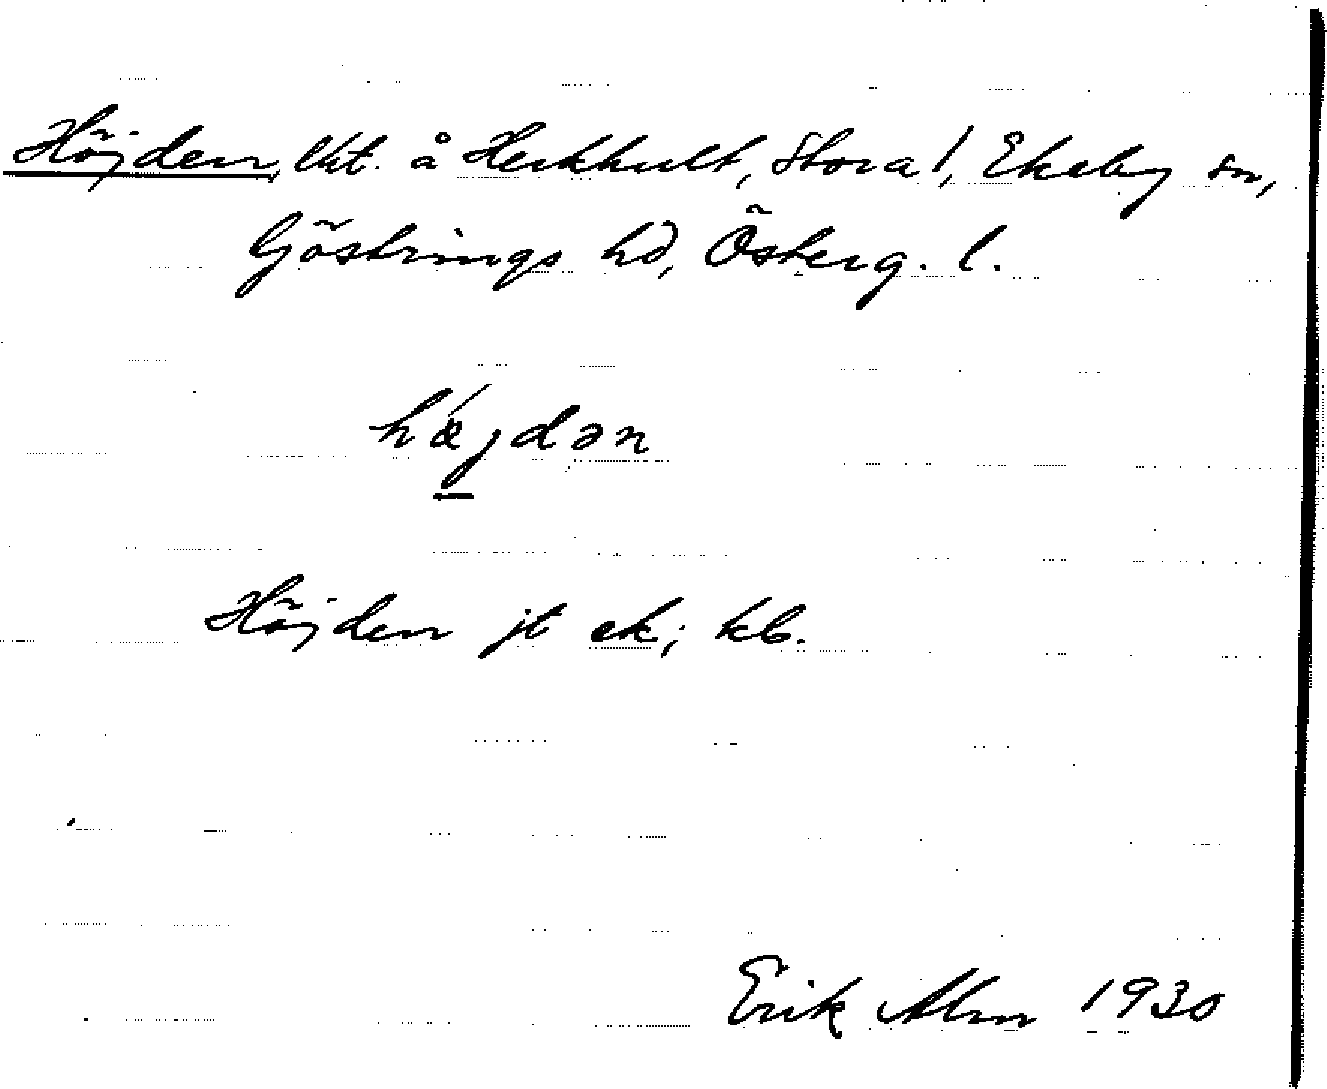 Höjden, lht. å Herkhult, Stora 1, Ekeby sn,
Göstrings hd, Österg. l.
hǽjdən
Höjden jt ek; kb.
Erik Alm 1930